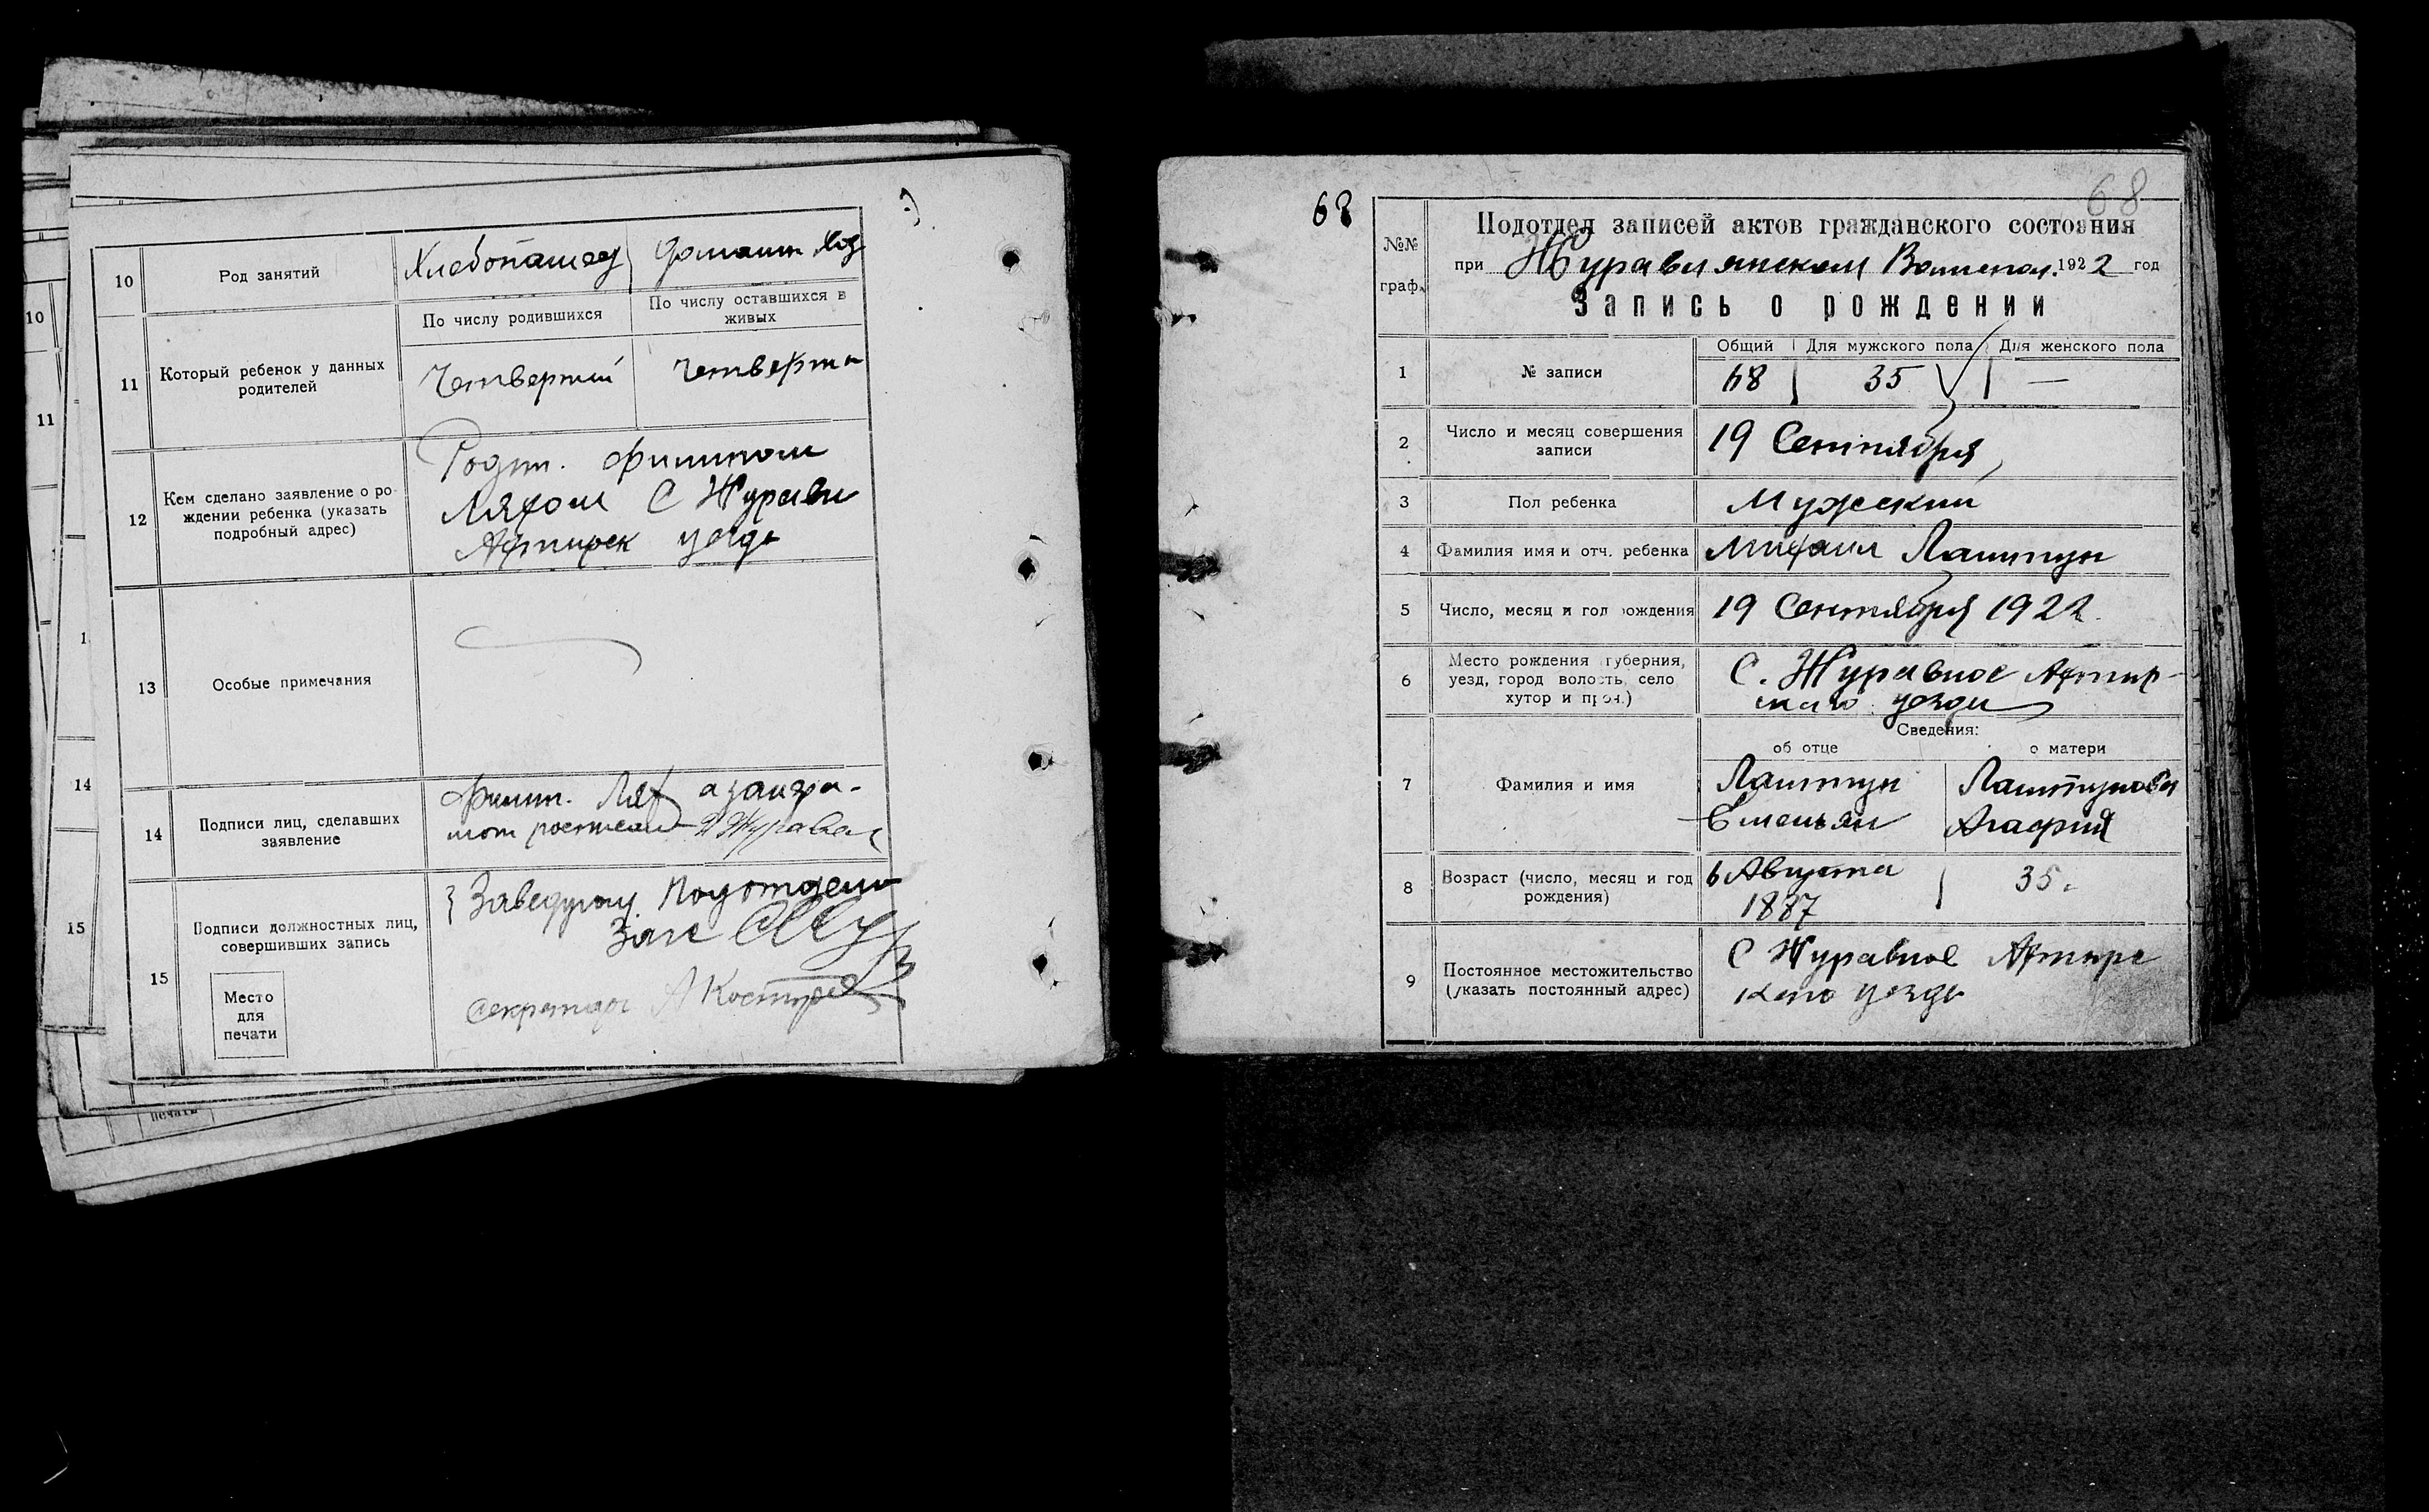 10
Род занятий
Хлебопашец
Домашн хоз
11
Который ребенок у данных
родителей
По числу родившихся
По числу оставшихся в
живых
Четвертый
Четверты
12
Кем сделано заявление о ро-
ждении ребенка (указать
подробный адрес)
Родит. Филипом
Ляхом С Журавн
Ахтирск уезда
13
Особые примечания
14
Подписи лиц, сделавших
заявление
Филип. Лях а занегра-
мот росписался Журавел
15
Подписи должностных лиц,
совершивших запись
Место
для
печати
Заведующ. Подотдела
Загс
Секретарь А
10
11
1
14
15
15
печать
68
68
№№
граф.
Подотдел записей актов гражданского состояния
при Журавлянском Волисполк. 1922 год
Запись о рождении
1
№ записи
Общий
Для мужского пола
Для женского пола
68
35
—
2
Число и месяц совершения
записи
19 Сентября
3
Пол ребенка
Мужский
4
Фамилия имя и отч. ребенка
Михаил Лаштун
5
Число, месяц и год рождения
19 Сентября 1922
6
Место рождения (губерния,
уезд, город волость, село
хутор и проч.)
С. Журавное Ахтир-
ского уезда
7
Фамилия и имя
Сведения:
об отце
о матери
Лаштун
Емельян
Лаштунова
Агафия
8
Возраст (число, месяц и год
рождения)
6 Августа
1887
35.
9
Постоянное местожительство
(указать постоянный адрес)
С Журавное Ахтирс
кого уезда